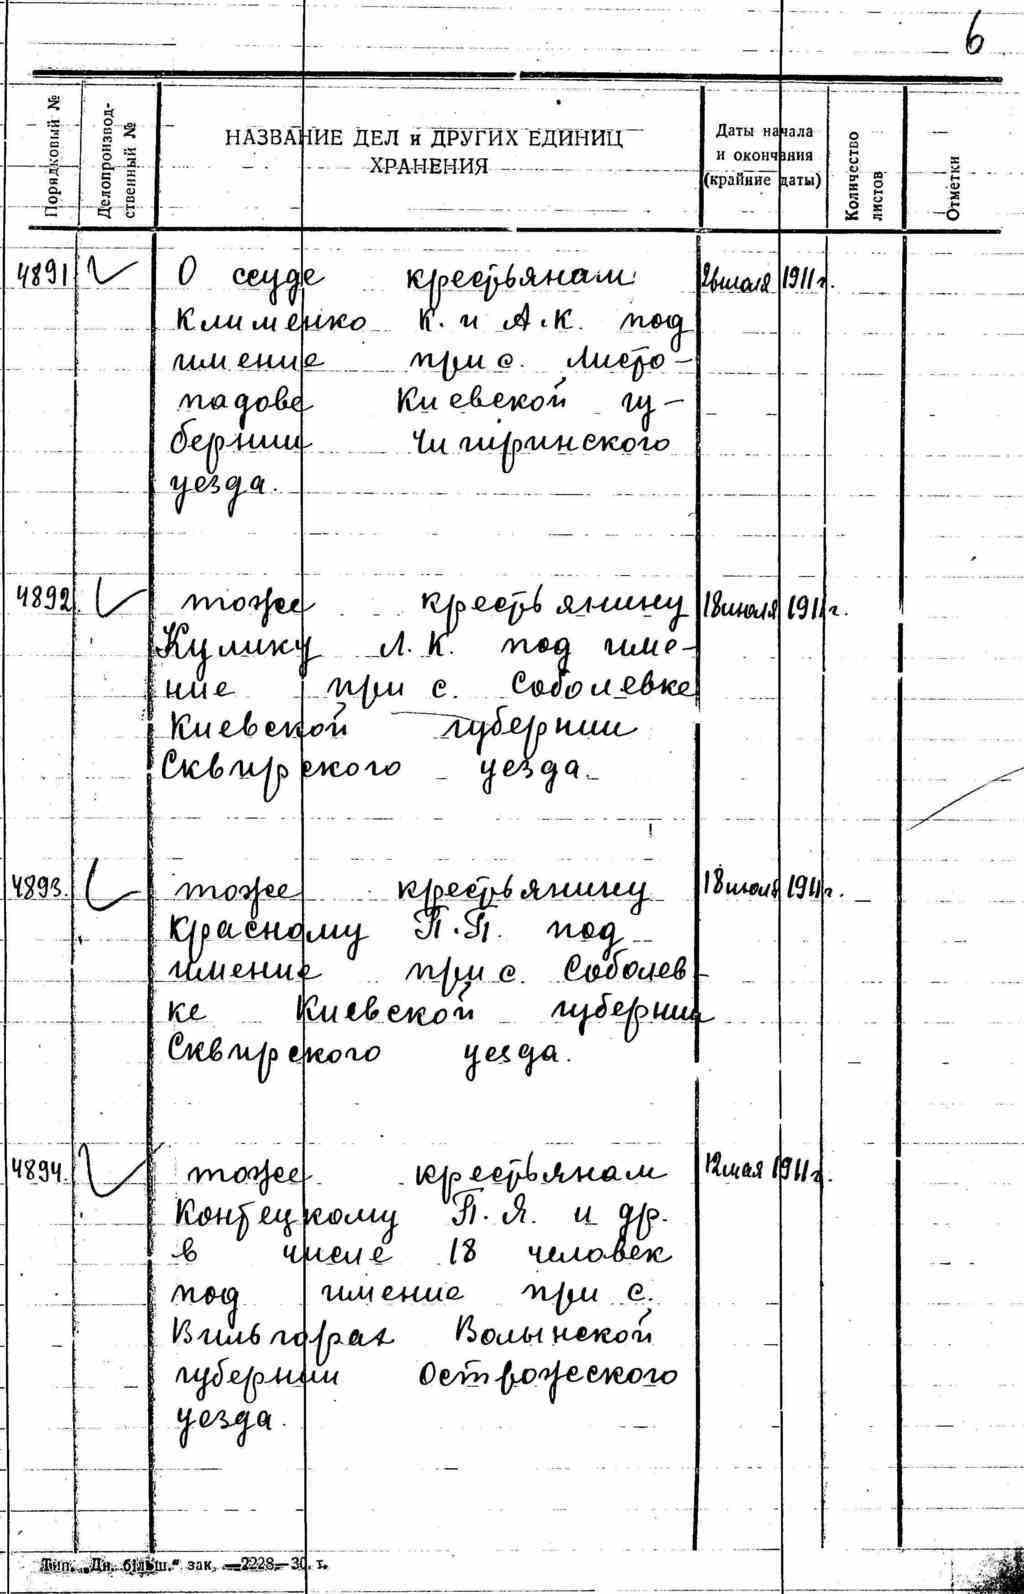 6
Порядковый №
Делопроизвод-
ственный №
НАЗВАНИЕ ДЕЛ и ДРУГИХ ЕДИНИЦ
ХРАНЕНИЯ
Даты начала
и окончания
(крайние даты)
Количество
листов
Отметки
4891 О ссуде крестьянам 1911г.
Клименко К. и А.К. под
имение при с. Листо-
падове Киевской гу-
бернии Чигиринского
уезда.
4892 тоже крестьянину 18 июля 1911г.
Кулику Л.К. под име-
ние при с. Соболевке
Киевской губернии
Сквирского уезда.
4893. тоже крестьянину 18 июля 1911г.
Красному П.П. под
имение при с. Соболев-
ке Киевской губернии
Сквирского уезда.
4894. тоже крестьянам 12 мая 1911г.
Контецкому П.Я. и др.
в числе 18 человек
под имение при с.
Вильгорах Волынской
губернии Острожеского
уезда.
Тип. „Дн. більш." зак. —2228—30. г.